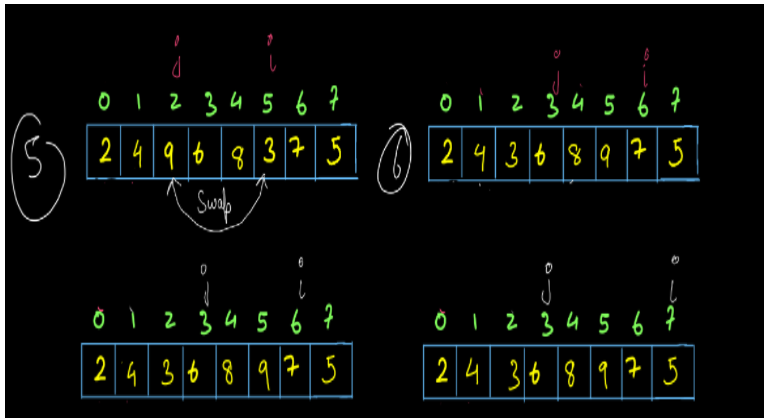 j i
0 1 2 3 4 5 6 7
5
2 4 9 6 8 3 7 5
Swap
j i
0 1 2 3 4 5 6 7
6
2 4 3 6 8 9 7 5
j i
0 1 2 3 4 5 6 7
2 4 3 6 8 9 7 5
j i
0 1 2 3 4 5 6 7
2 4 3 6 8 9 7 5